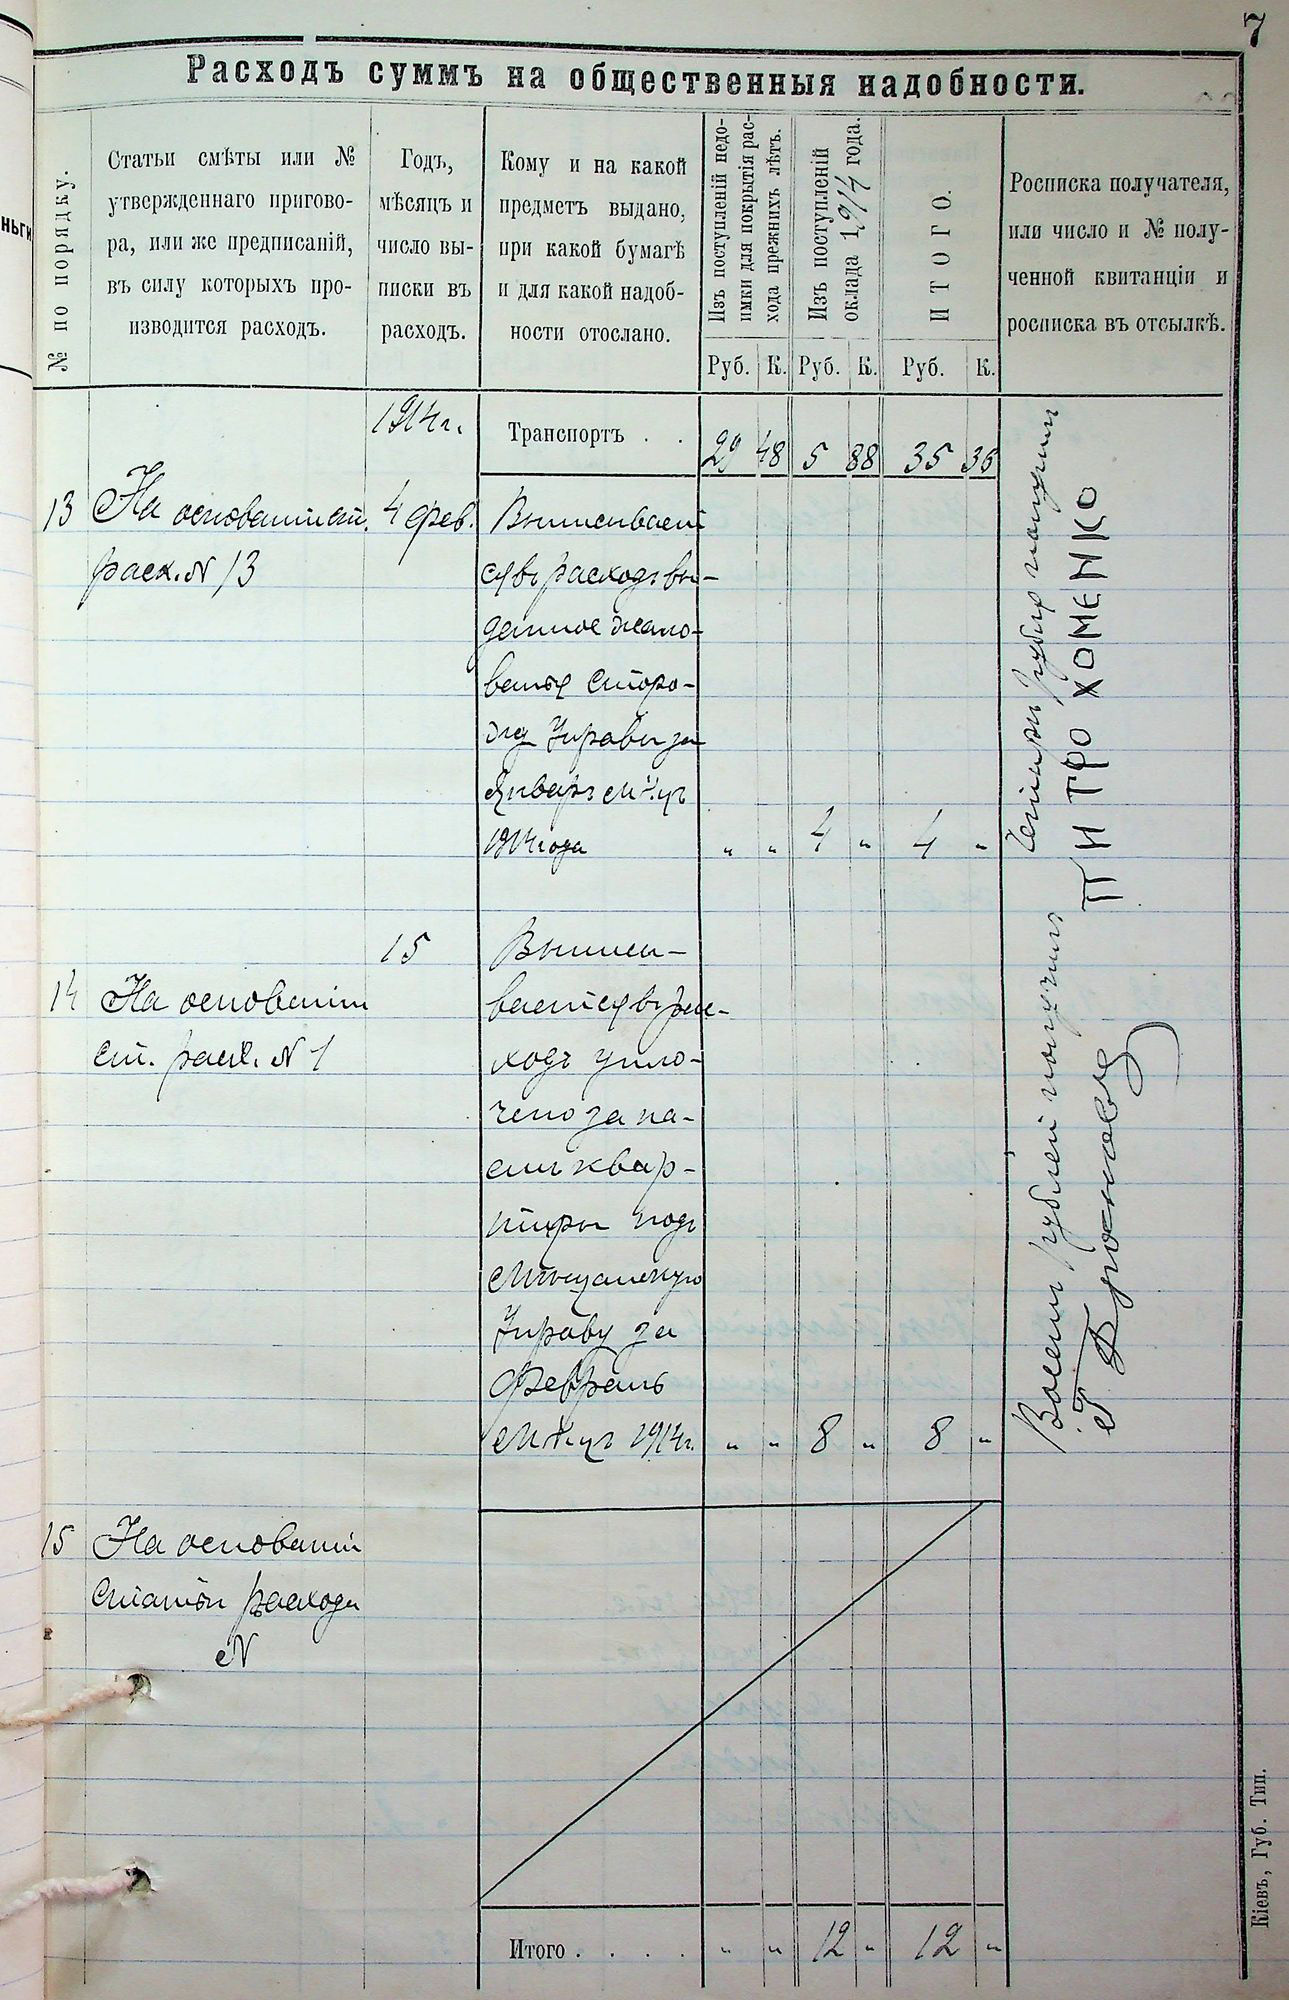 7
Расходъ суммъ на общественныя надобности.
№ по порядку.
Статьи смѣты или №
утвержденнаго пригово-
ра, или же предписаній,
въ силу которыхъ про-
изводится расходъ.
Годъ,
мѣсяцъ и
число вы-
писки въ
расходъ.
Кому и на какой
предметъ выдано,
при какой бумагѣ
и для какой надоб-
ности отослано.
Изъ поступленій недо-
имки для покрытія рас-
хода прежнихъ лѣтъ.
Изъ поступленій
оклада 1914 года.
ИТОГО.
Росписка получателя,
или число и № полу-
ченной квитанціи и
росписка въ отсылкѣ.
Руб. К. Руб. К. Руб. К.
ньги
1914 г.
Транспортъ . .
29 48 5 88 35 36
13 На основаніи ст. 4 фев. Выписывает
раск. № 13 ся въ расходъ вы-
данное жало-
ванье Сторо-
жу Управы за
Январь м-цъ
1914 года „ „ 4 „ 4 „
Четыри рубля получил
ПИТРО ХОМЕНКО
15 Выписы-
14 На основаніи вается въ рас-
ст. расх. № 1 ходъ упло-
чено за на-
емъ квар-
тиры подъ
Мѣщанскую
Управу за
Февраль
м-цъ 1914 г. „ „ 8 „ 8 „
Восемь рублей получилъ
15 На основаніи
статьи расхода
№
Итого . . . . „ „ 12 „ 12 „
Кіевъ, Губ. Тип.